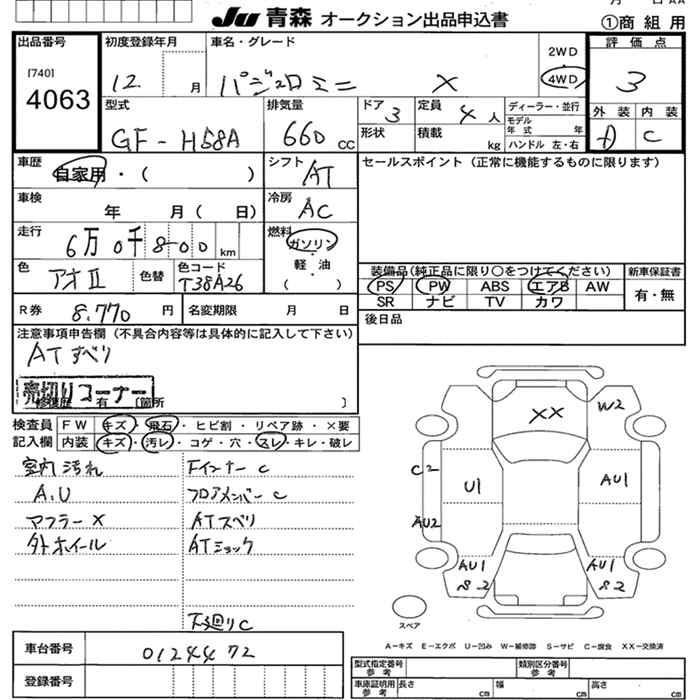 Ju 青森 オークション出品申込書
①商組用
出品番号
[740]
4063
初度登録年月
12 月
車名・グレード
パジェロミニ X
2WD
4WD
評価点
3
外装 内装
A C
型式
GF-H58A
排気量
660 CC
ドア 3
形状
定員 4人
積載 kg
ディーラー・並行
モデル年式 年
ハンドル 左・右
車歴
自家用・( )
シフト
AT
セールスポイント(正常に機能するものに限ります)
車検
年 月( 日)
冷房
AC
走行
6万0千800 km
燃料
ガソリン
・
軽油
( )
色
アオII
色替
色コード
T38A26
装備品(純正品に限り○をつけてください)
PS PW ABS エアB AW
SR ナビ TV カワ
新車保証書
有・無
R券 8.770 円
名変期限 月 日
後日品
注意事項申告欄(不具合内容等は具体的に記入して下さい)
ATすべり
売切りコーナー
修復歴 有 (箇所 )
検査員記入欄
FW キズ・飛石・ヒビ割・リペア跡・×要
内装 キズ・汚レ・コゲ・穴・スレ・キレ・破レ
室内汚れ
A.U
マフラーX
外ホイール
Fインナー C
フロアメンバー C
ATスベリ
ATショック
下廻りC
XX
W2
C2
U1
AU1
AU2
AU1
S2
AU1
S2
スペア
A-キズ E-エクボ U-凹み W-補修跡 S-サビ C-腐食 XX-交換済
車台番号
0124472
登録番号
型式指定番号
参考
類別区分番号
参考
車庫証明用
参考
長さ cm
幅 cm
高さ cm